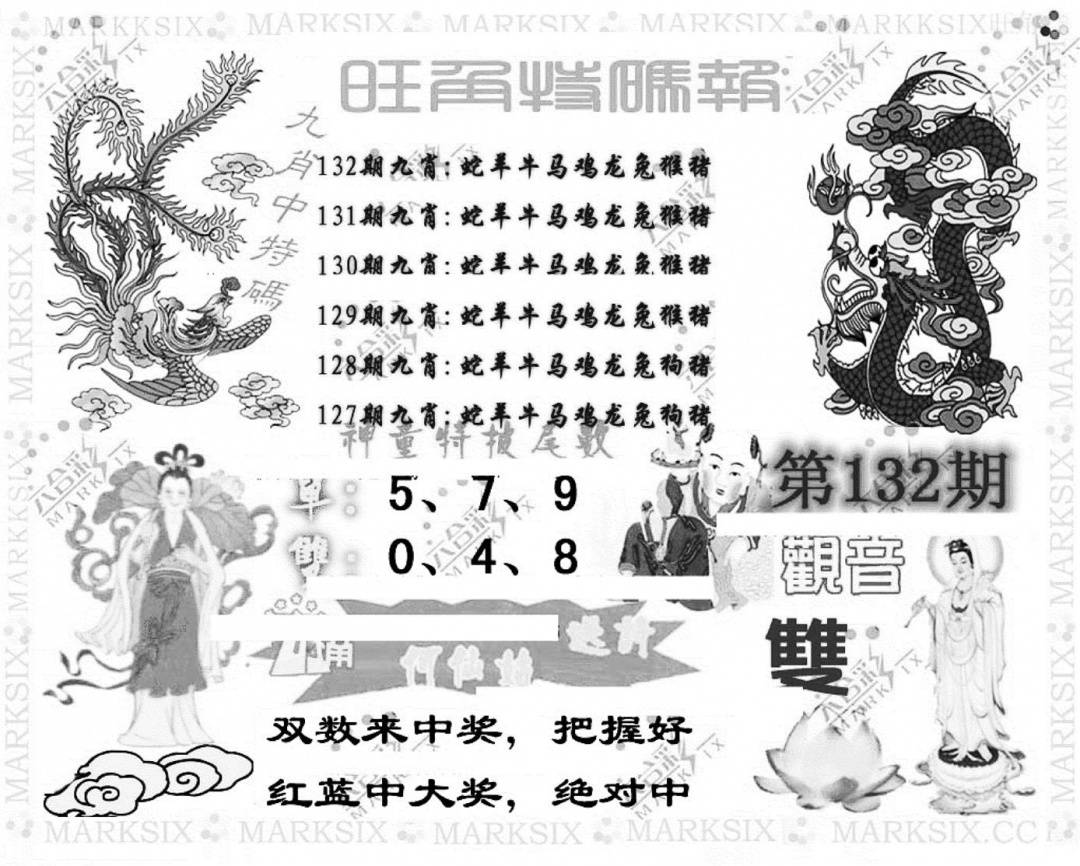 MARKKSIX MARKSIX MARKSIX MARKSIX MARKKSIX
旺角特碼報
九肖中特碼
132期九肖:蛇羊牛马鸡龙兔猴猪
131期九肖:蛇羊牛马鸡龙兔猴猪
130期九肖:蛇羊牛马鸡龙兔猴猪
129期九肖:蛇羊牛马鸡龙兔猴猪
128期九肖:蛇羊牛马鸡龙兔狗猪
127期九肖:蛇羊牛马鸡龙兔狗猪
神童特披尾数
單:5、7、9
雙:0、4、8
第132期
觀音
雙
何仙姑
双数来中奖，把握好
红蓝中大奖，绝对中
MARKSIX MARKSIX MARKSIX MARKSIX MARKSIX.CC